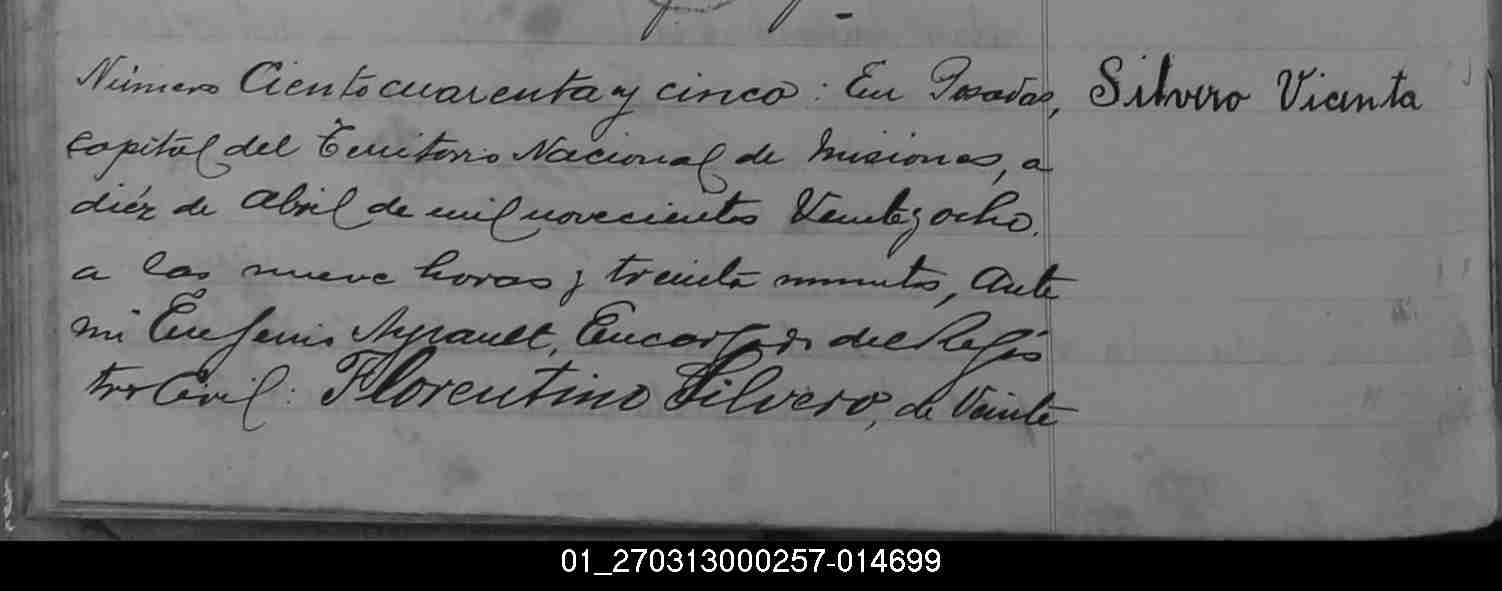 Número Ciento cuarenta y cinco: En Posadas,
Silvero Vicenta
capital del Territorio Nacional de Misiones, a
diéz de Abril de mil novecientos Veinte y ocho.
a las nueve horas y treinta minutos, Ante
mi Eugenio Ayrault, Encargado del Regis
tro Civil: Florentino Silvero, de Veinte
01_270313000257-014699